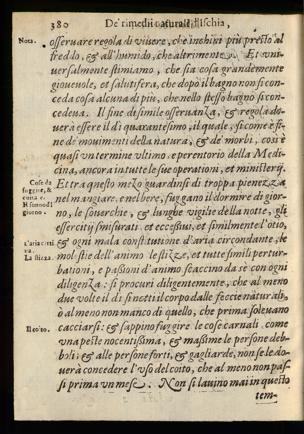 380 De' rimedii naturali d'Ischia,
Nota. osservare regola di vivere, che inchini più presto al
freddo, & all'humido, che altrimente. Et uni-
versalmente stimiamo, che sia cosa grandemente
giovevole, et salutifera, che dopo il bagno non si con-
ceda cosa alcuna di più, che nello stesso bagno si con-
cedeva. Il fine di simile osservanza, & regola do-
verà essere il dì quarantesimo, il quale, si come è fi-
ne de' movimenti della natura, & de' morbi, così è
quasi un termine ultimo. e perentorio della Medi-
cina, ancora in tutte le sue operationi, et ministerij.
Cose da Et tra questo mezo guardinsi di troppa pienezza
fuggire, &
nel mangiare. e nel bere, fuggano il dormire di gior-
Il sonno del
giorno. no, le soverchie, & lunghe vigilie della notte, gli
essercitij smisurati. et eccessivi, et similmente l'otio,
& ogni mala constitutione d'aria circondante, le
molstie dell'animo le stizze, et tutte simili pertur-
La stizza.
bationi, e passioni d'animo scaccino da se con ogni
diligenza: si procuri diligentemente, che al meno
due volte il dì si netti il corpo dalle feccie naturali,
ò al meno non manco di quello, che prima solevano
Il coito. cacciarsi: & sappino fuggire le cose carnali. come
una peste nocentissima, & massime le persone de-
boli; & alle persone forti, & gagliarde, non se le do-
verà concedere l'uso del coito, che al meno non pas-
si prima un mese. Non si lavino mai in questo
tem-